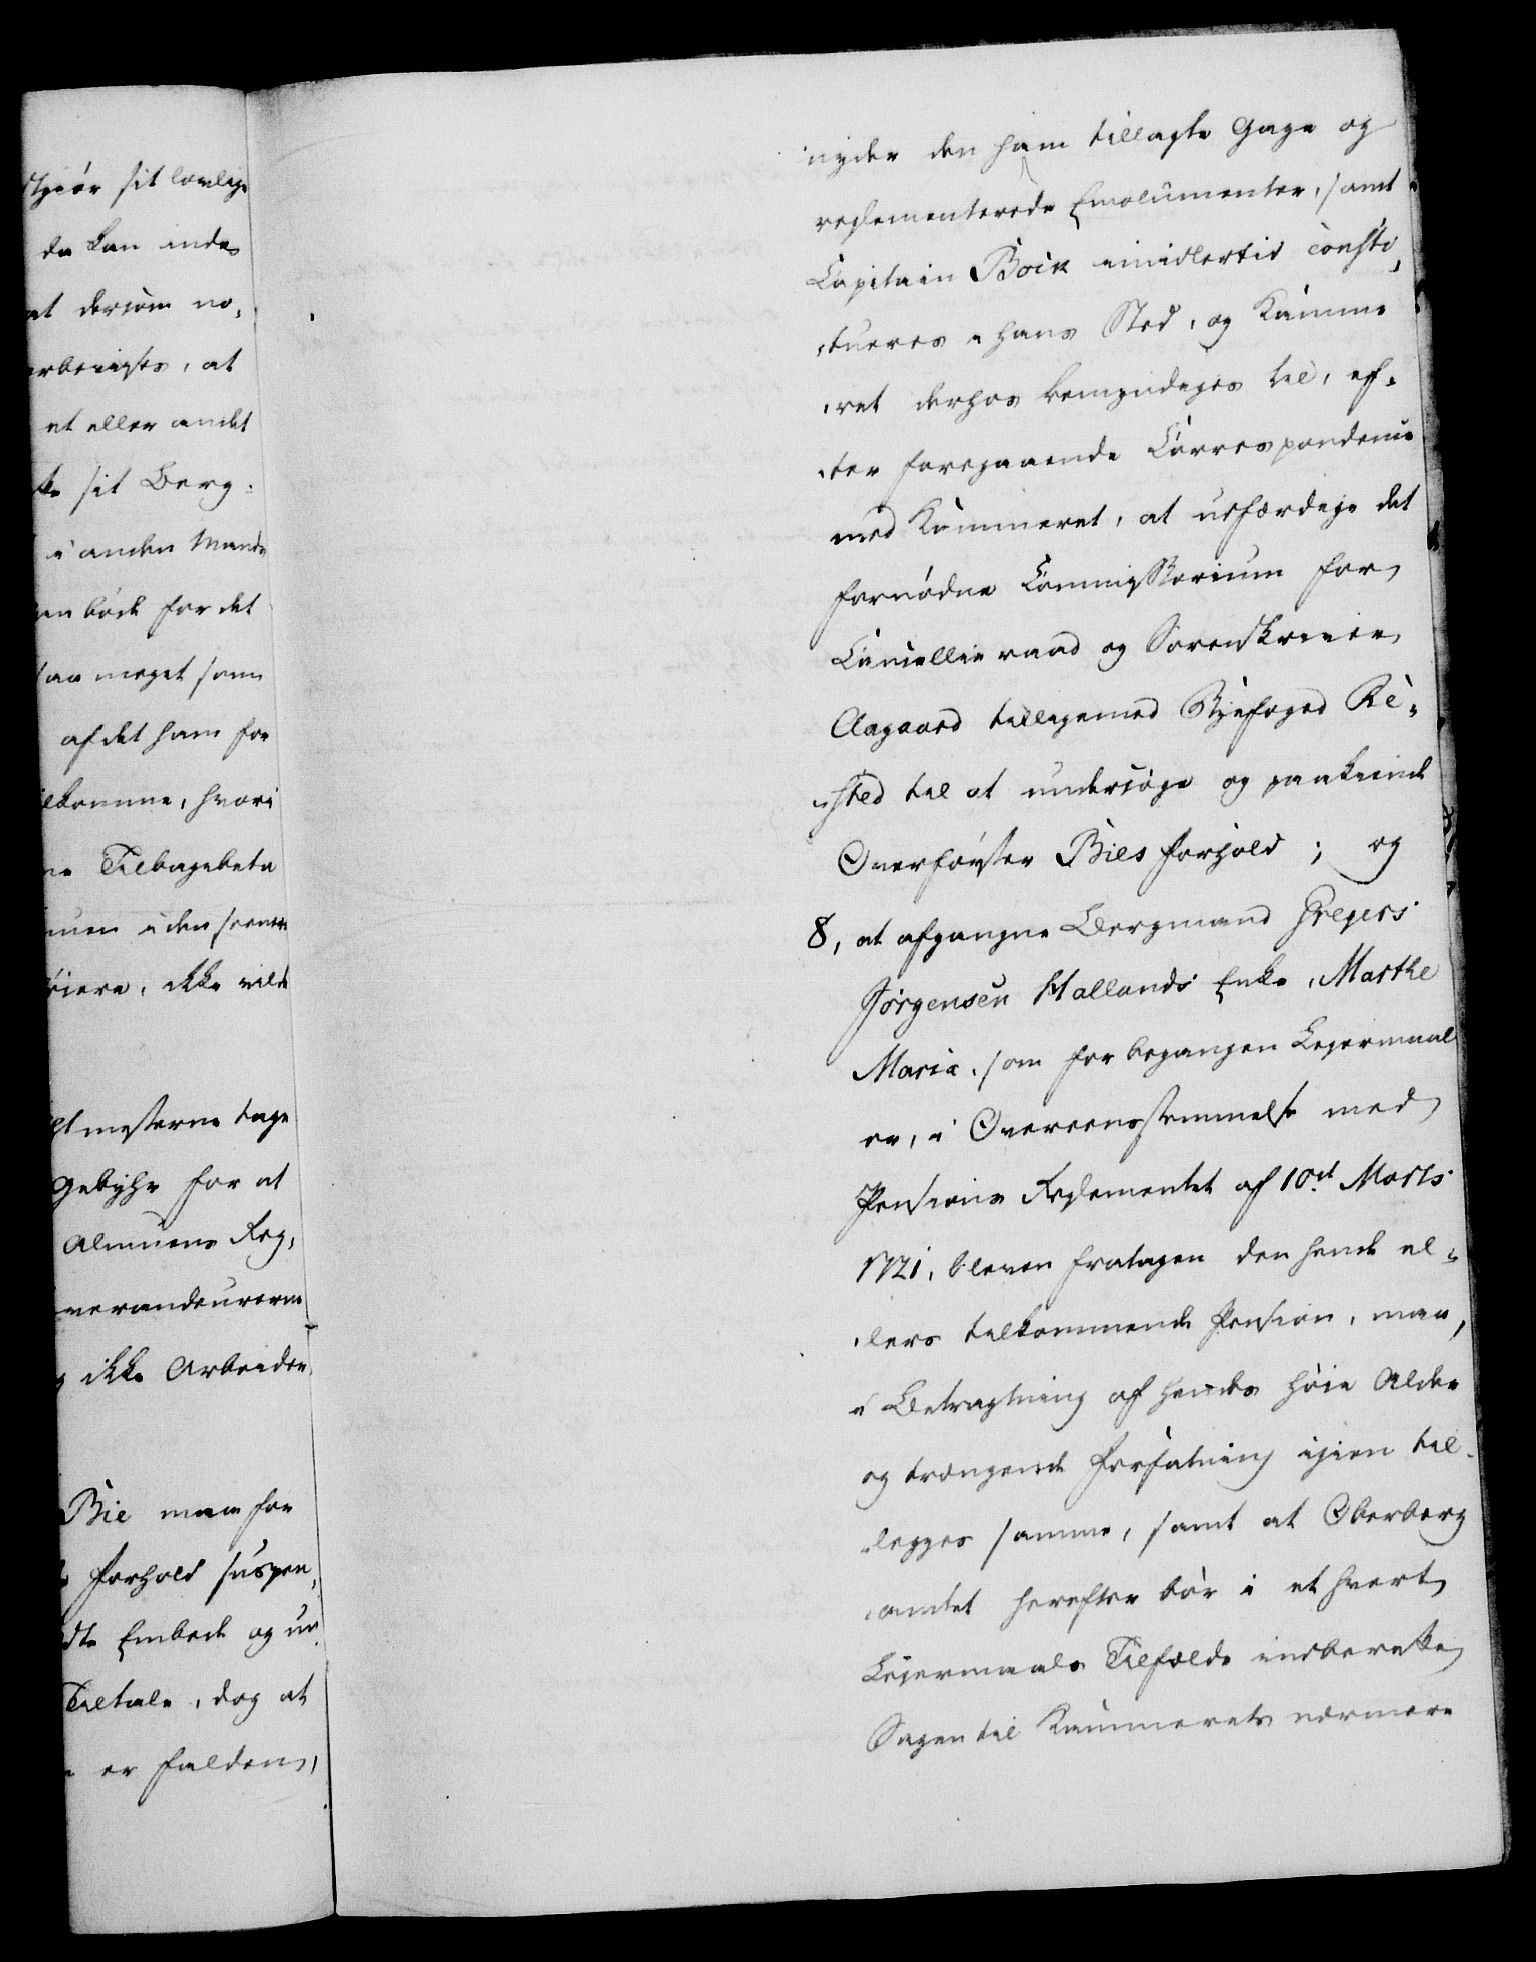 stgiør sit lovlige
da kan indes
at dersom no,
et eller andet
sit Berg-
i anden Mands
bøde for det
saa meget som
af det ham for
komme, hvori
Tilbagebeta
i den
ikke vilde
mesterne tage
Gebyhr for at
Almuens Reg,
ikke Arbeider
Bie maa for
Forhold suspen,
Embede og un
Tiltale, dog at
er falden,
nyder den ham tillagte Gage og
reglementerede Emolumenter, samt
Capitain Boik imidlertid consti,
tueres i hans Sted, og Kamme
ret derhos bemyndiges til, ef-
ter foregaaende Correspondence
med Kammeret, at udfærdige det
fornødne Commissorium for
Cancellieraad og Sorenskriver
Aagaard tilligemed Byefoged Re-
sted til at undersøge og paakiende
Overførster Bies Forhold; og
8, at afgangne Bergmand Gregers
Jørgensen Hallands Enke, Marthe
Maria, som for begangen Leiermaal
er, i Overeensstemmelse med
Pensions Reglementet af 10de Marts
1721, bleven fratagen den hende el-
lers tilkommende Pension, maa,
i Betragtning af hendes høie Alder
og trængende Forfatning igien til-
legges samme, samt at Oberberg
amtet herefter bør i et hvert
Leiermaals Tilfælde indberette
Sagen til Kammerets nærmere